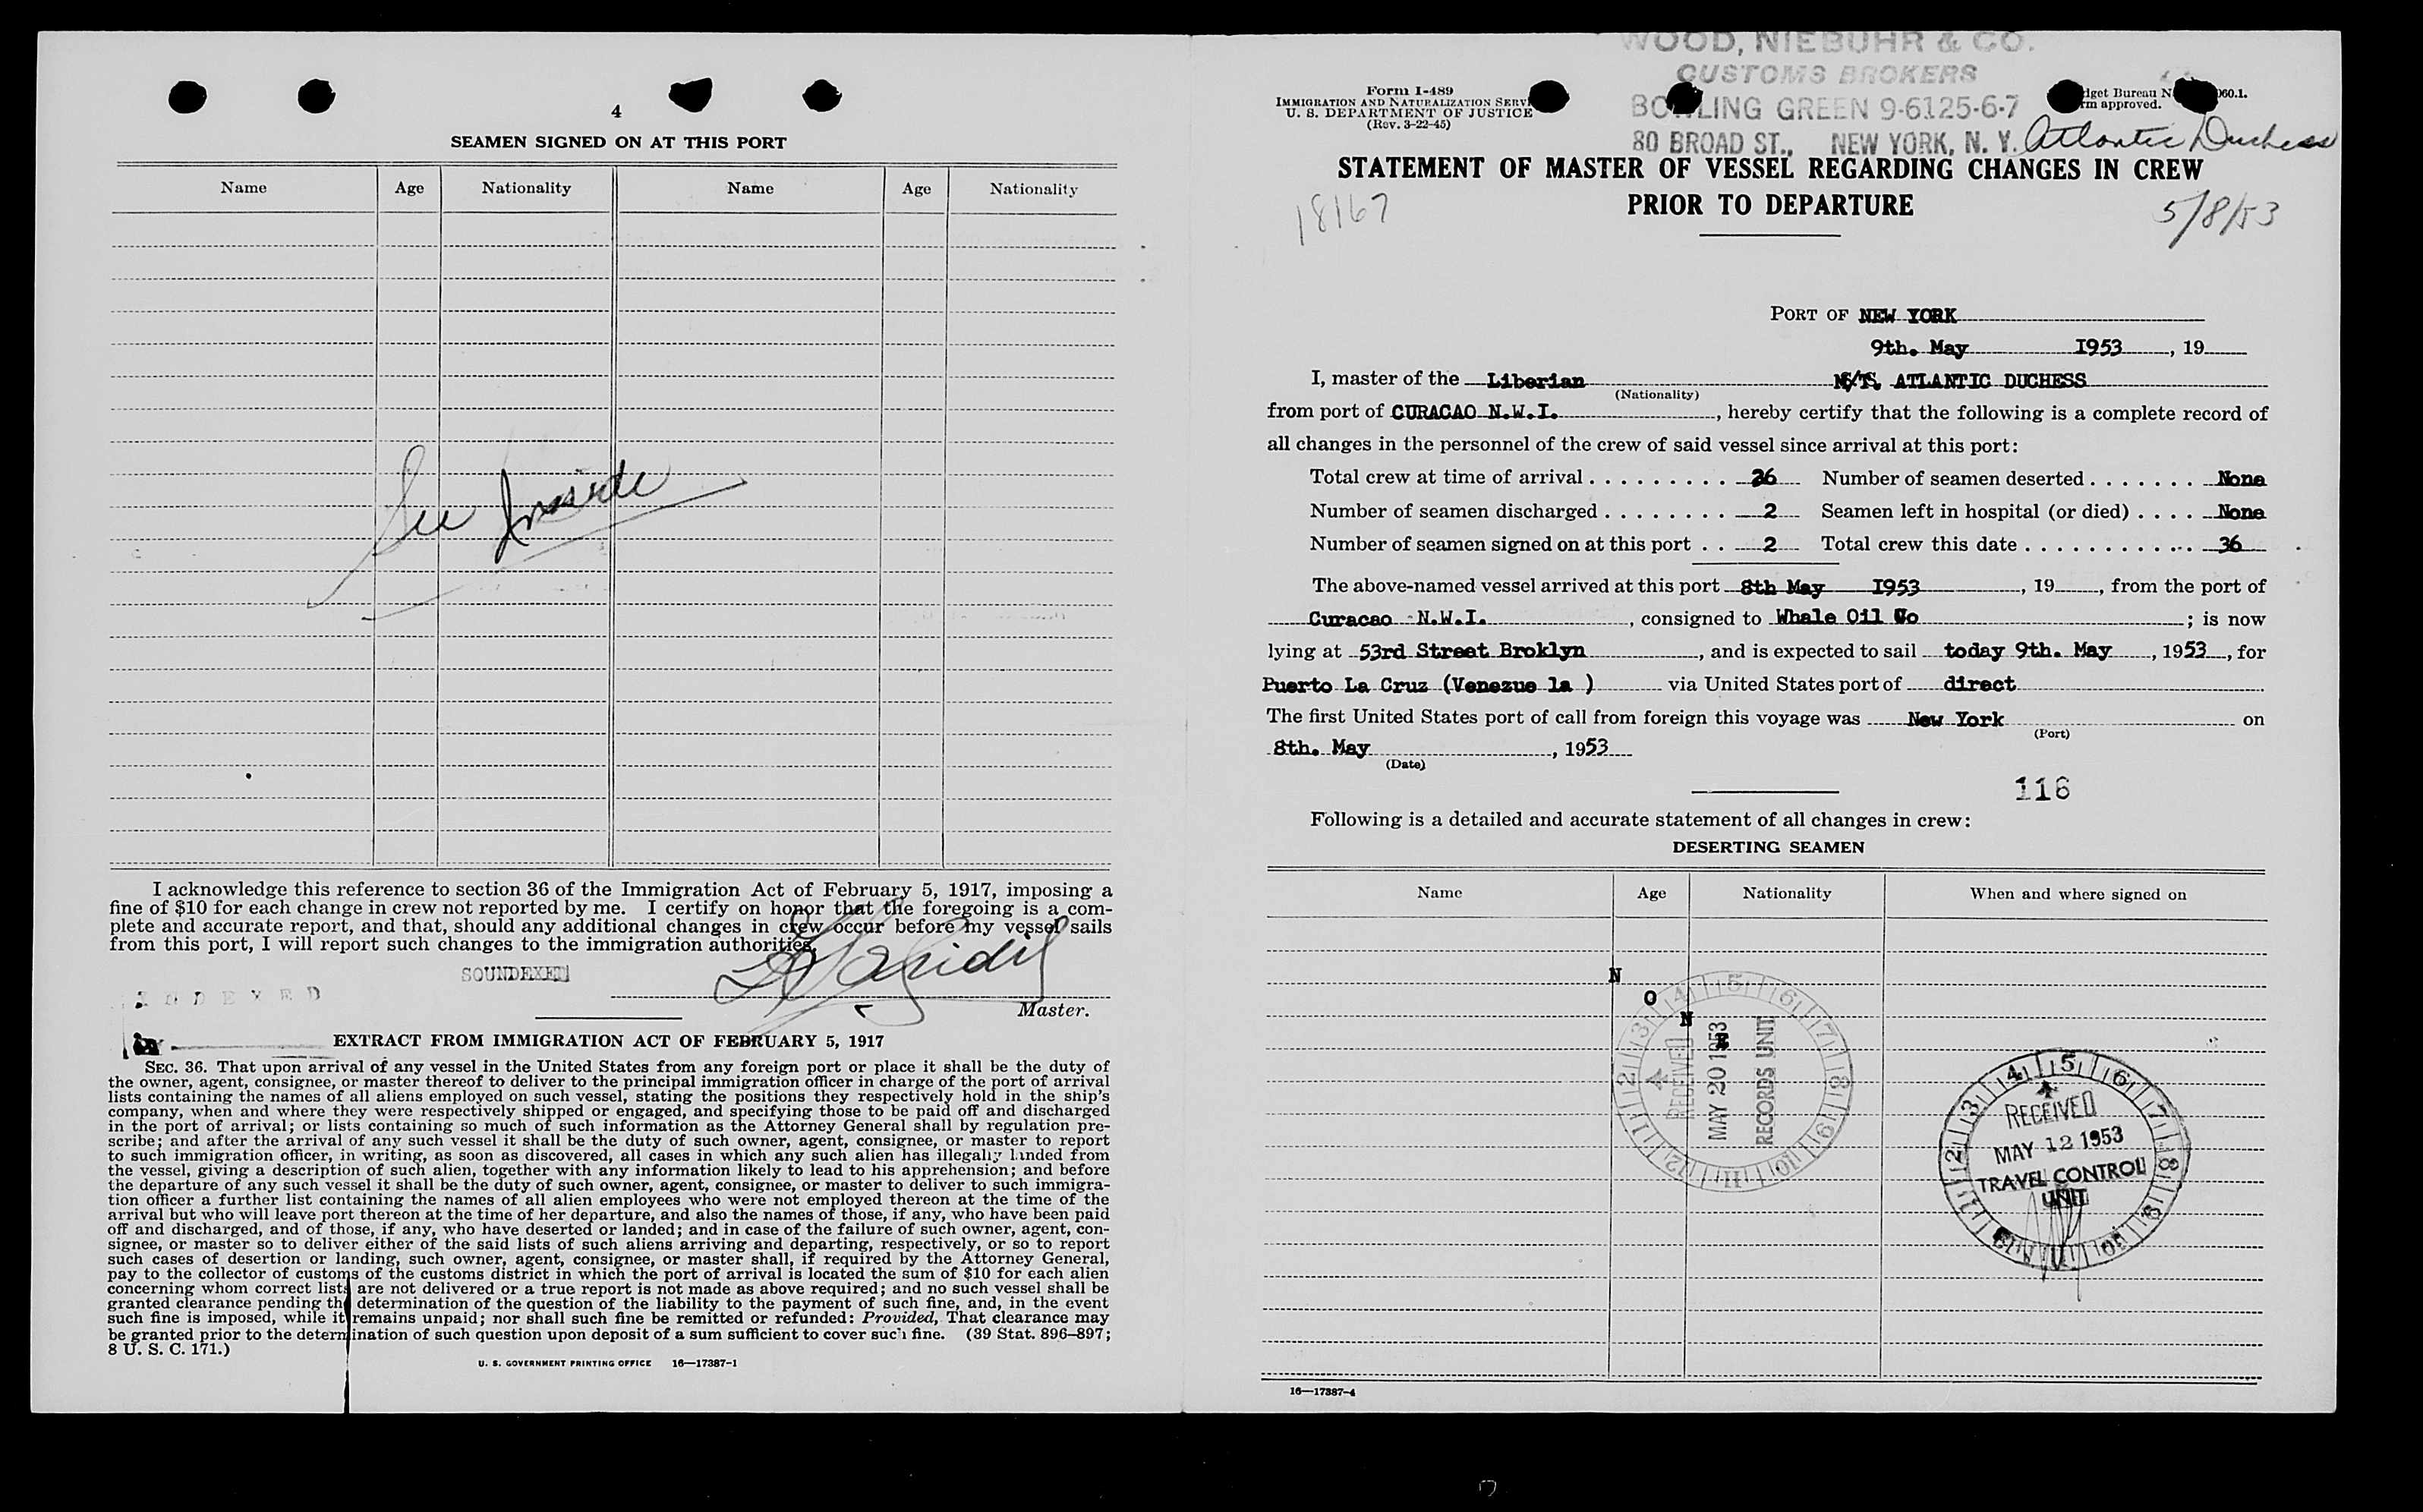 4
SEAMEN SIGNED ON AT THIS PORT
Name Age Nationality Name Age Nationality
See Inside
I acknowledge this reference to section 36 of the Immigration Act of February 5, 1917, imposing a
fine of $10 for each change in crew not reported by me. I certify on honor that the foregoing is a com-
plete and accurate report, and that, should any additional changes in crew occur before my vessel sails
from this port, I will report such changes to the immigration authorities.
SOUNDEXED
INDEXED
Master.
EXTRACT FROM IMMIGRATION ACT OF FEBRUARY 5, 1917
SEC. 36. That upon arrival of any vessel in the United States from any foreign port or place it shall be the duty of
the owner, agent, consignee, or master thereof to deliver to the principal immigration officer in charge of the port of arrival
lists containing the names of all aliens employed on such vessel, stating the positions they respectively hold in the ship's
company, when and where they were respectively shipped or engaged, and specifying those to be paid off and discharged
in the port of arrival; or lists containing so much of such information as the Attorney General shall by regulation pre-
scribe; and after the arrival of any such vessel it shall be the duty of such owner, agent, consignee, or master to report
to such immigration officer, in writing, as soon as discovered, all cases in which any such alien has illegally landed from
the vessel, giving a description of such alien, together with any information likely to lead to his apprehension; and before
the departure of any such vessel it shall be the duty of such owner, agent, consignee, or master to deliver to such immigra-
tion officer a further list containing the names of all alien employees who were not employed thereon at the time of the
arrival but who will leave port thereon at the time of her departure, and also the names of those, if any, who have been paid
off and discharged, and of those, if any, who have deserted or landed; and in case of the failure of such owner, agent, con-
signee, or master so to deliver either of the said lists of such aliens arriving and departing, respectively, or so to report
such cases of desertion or landing, such owner, agent, consignee, or master shall, if required by the Attorney General,
pay to the collector of customs of the customs district in which the port of arrival is located the sum of $10 for each alien
concerning whom correct lists are not delivered or a true report is not made as above required; and no such vessel shall be
granted clearance pending the determination of the question of the liability to the payment of such fine, and, in the event
such fine is imposed, while it remains unpaid; nor shall such fine be remitted or refunded: Provided, That clearance may
be granted prior to the determination of such question upon deposit of a sum sufficient to cover such fine. (39 Stat. 896–897;
8 U. S. C. 171.)
U. S. GOVERNMENT PRINTING OFFICE 16—17387-1
WOOD, NIEBUHR & CO.
CUSTOMS BROKERS
BOWLING GREEN 9-6125-6-7
80 BROAD ST., NEW YORK, N. Y.
Form I-489
IMMIGRATION AND NATURALIZATION SERVI
U. S. DEPARTMENT OF JUSTICE
(Rev. 3-22-45)
dget Bureau N 060.1.
rm approved.
Atlantic Duchess
STATEMENT OF MASTER OF VESSEL REGARDING CHANGES IN CREW
PRIOR TO DEPARTURE
18167
5/8/53
PORT OF NEW YORK
9th. May 1953, 19
I, master of the Liberian ATLANTIC DUCHESS
(Nationality)
from port of CURACAO N.W.I., hereby certify that the following is a complete record of
all changes in the personnel of the crew of said vessel since arrival at this port:
Total crew at time of arrival 36 Number of seamen deserted None
Number of seamen discharged 2 Seamen left in hospital (or died) None
Number of seamen signed on at this port 2 Total crew this date 36
The above-named vessel arrived at this port 8th May 1953, 19, from the port of
Curacao N.W.I., consigned to Whale Oil Co; is now
lying at 53rd Street Broklyn, and is expected to sail today 9th. May, 1953, for
Puerto La Cruz (Venezue la ) via United States port of direct
The first United States port of call from foreign this voyage was New York on
(Port)
8th. May, 1953
(Date)
116
Following is a detailed and accurate statement of all changes in crew:
DESERTING SEAMEN
Name Age Nationality When and where signed on
N
O
N
E
RECEIVED
MAY 20 1953
RECORDS UNIT
RECEIVED
MAY 12 1953
TRAVEL CONTROL
UNIT
16—17387-4